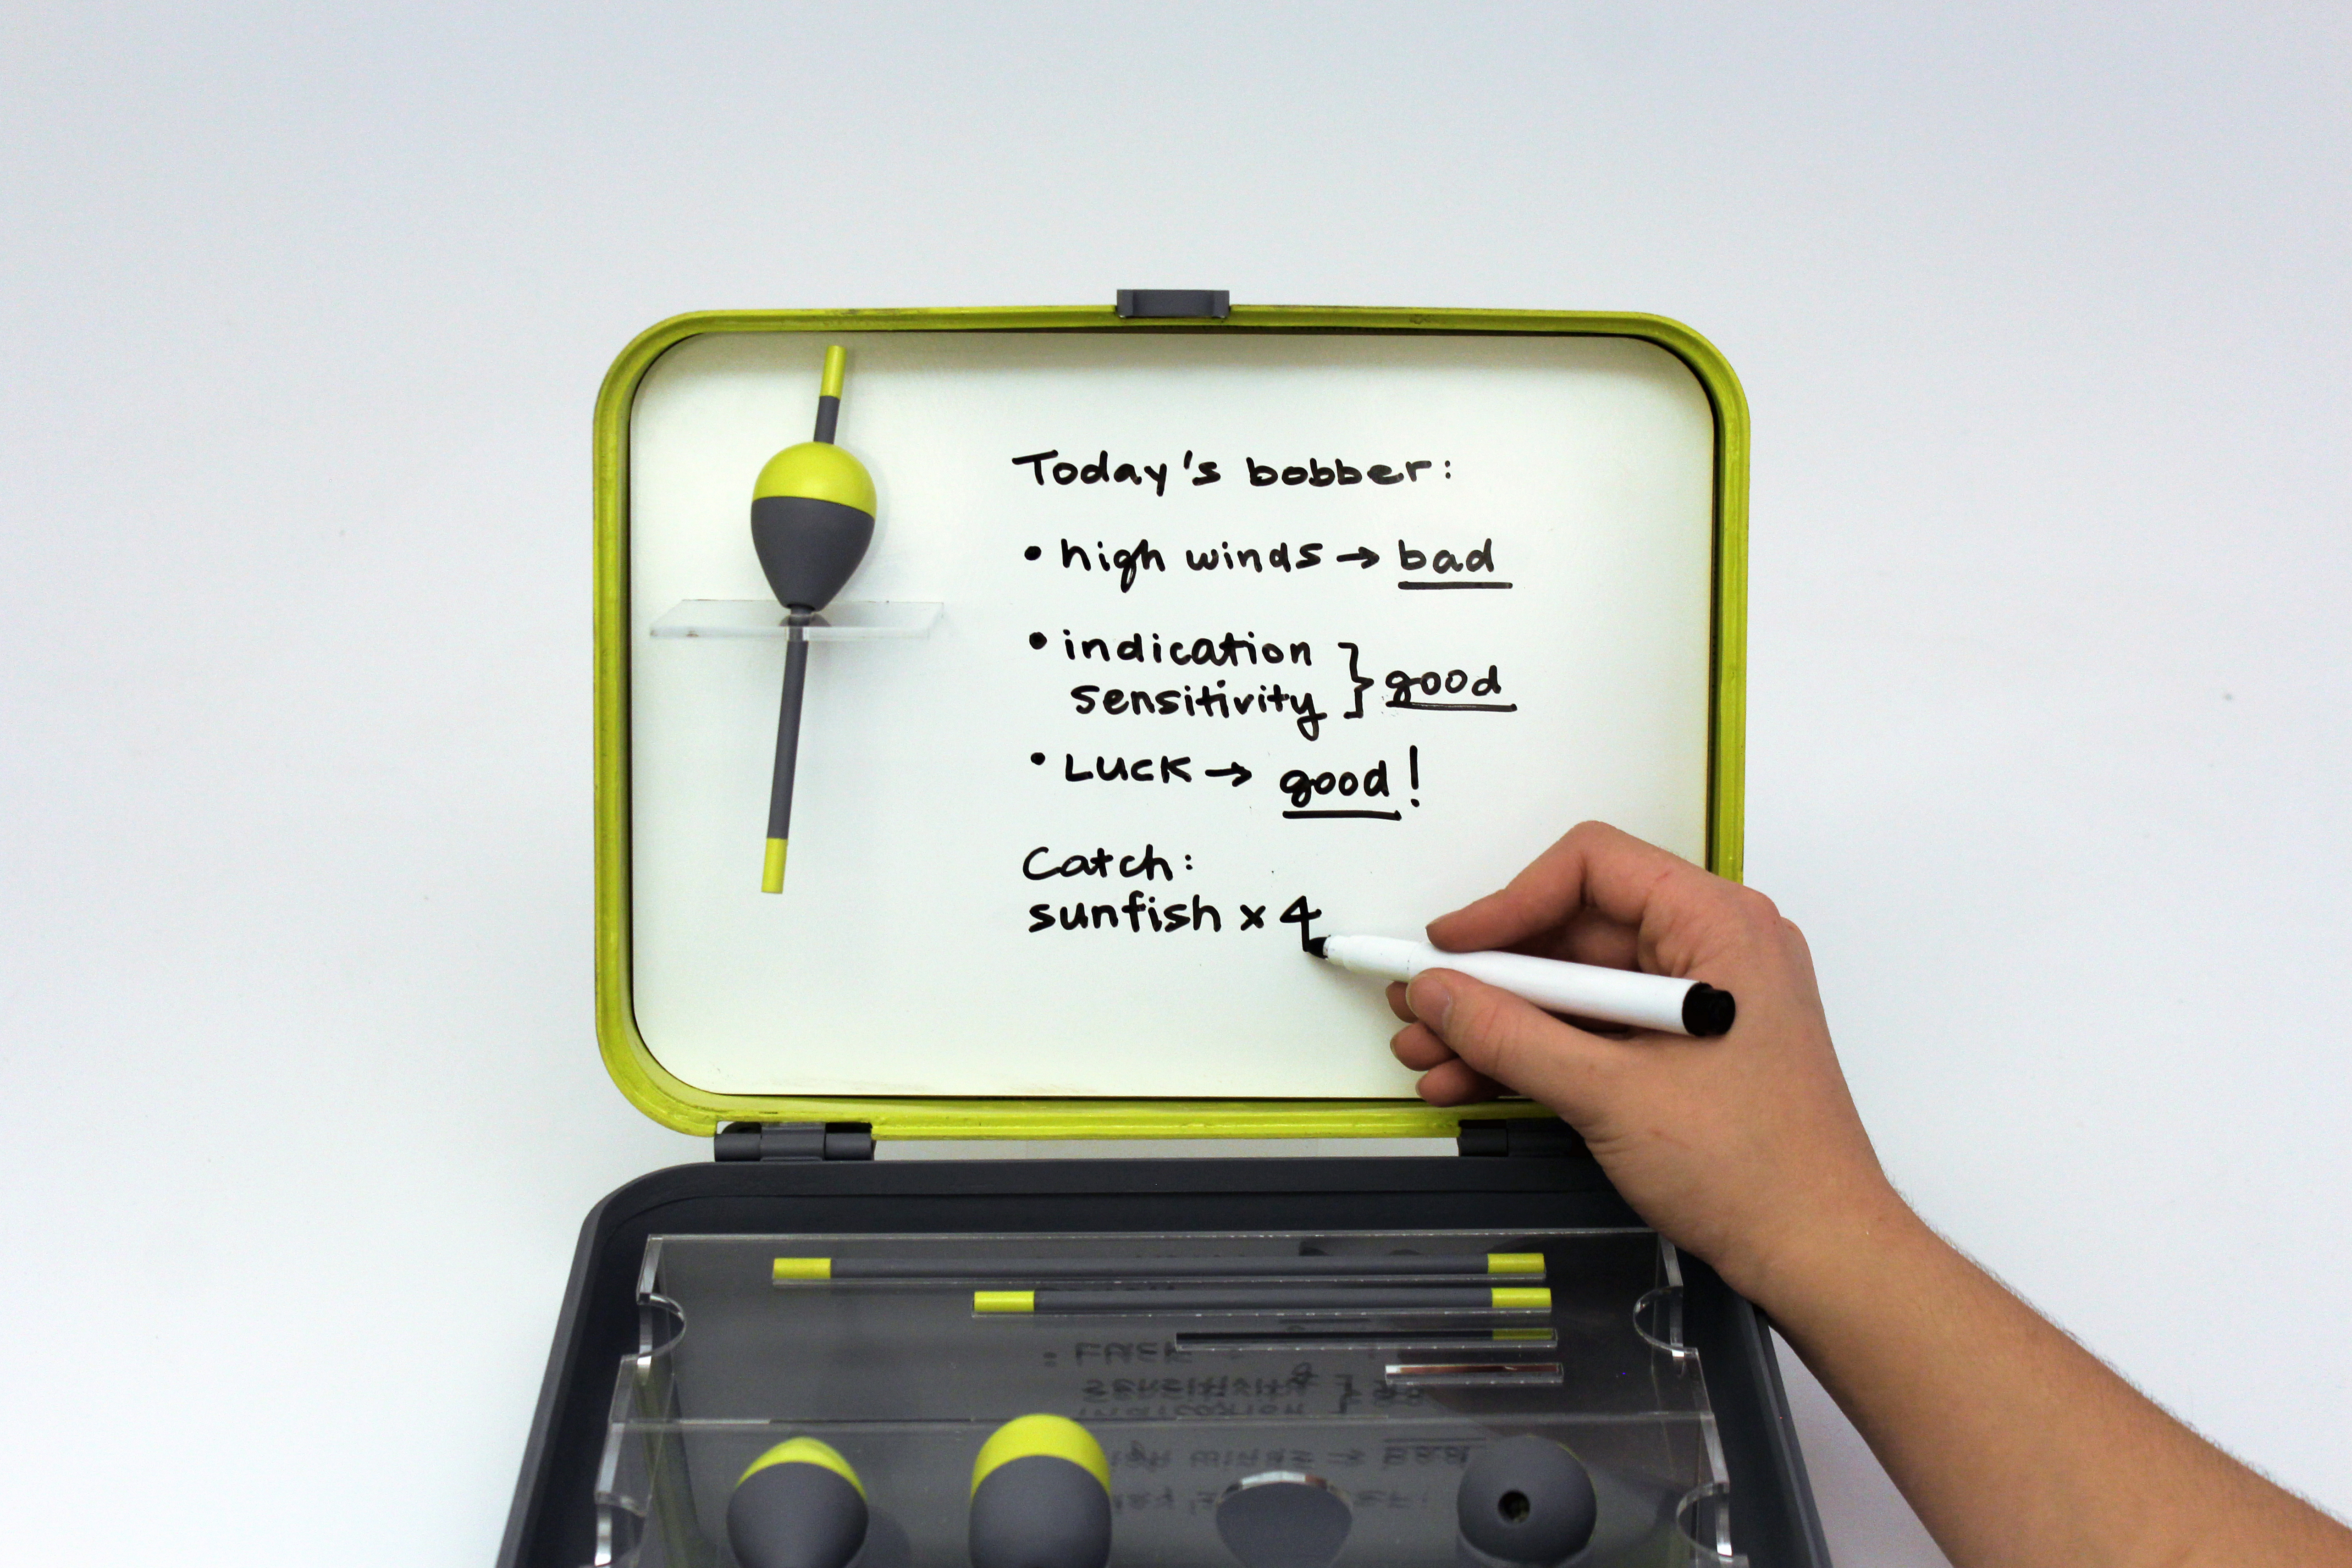 Today's bobber:
• high winds → bad
• indication
sensitivity } good
• LUCK → good!
Catch:
sunfish x 4